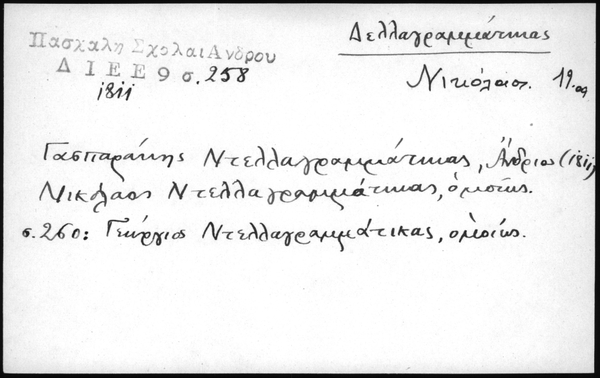 Πασχαλη Σχολαι Ανδρου
Δ Ι Ε Ε 9 σ. 258
1811
Δελλαγραμμάτικας
Νικόλαος.
Γασπαράκης Ντελλαγραμμάτικας, Ἄνδριος (1811)
Νικόλαος Ντελλαγραμμάτικας, ὁμοίως.
σ. 260: Γεώργιος Ντελλαγραμμάτικας, ὁμοίως.